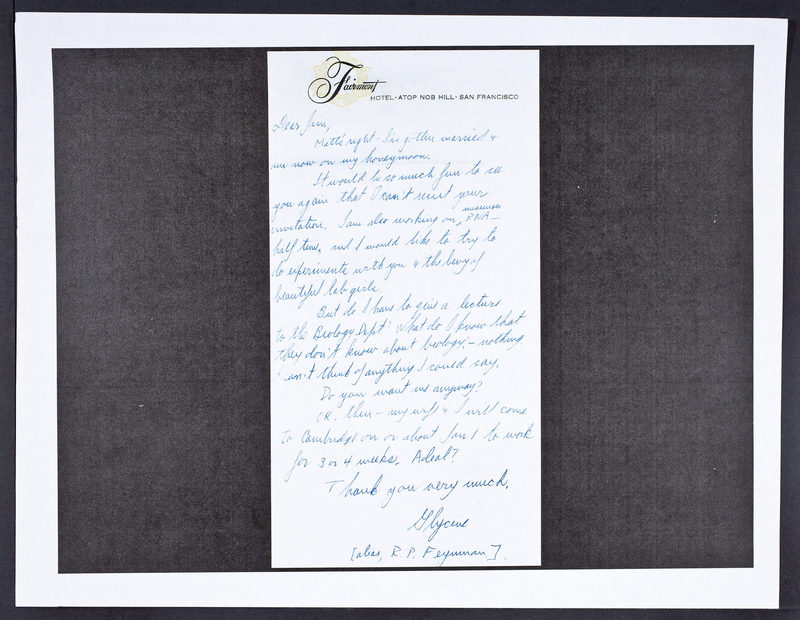 Fairmont
HOTEL · ATOP NOB HILL · SAN FRANCISCO
Dear Jim,
Matt's right - I've gotten married &
am now on my honeymoon.
It would be so much fun to see
you again that I can't resist your
invitation. I am also working on messenger RNA -
half time, and I would like to try to
do experiments with you & the bevy of
beautiful lab girls.
But do I have to give a lecture
to the Biology Dept? What do I know that
they don't know about biology, - nothing
I can't think of anything I could say.
Do you want me anyway?
OK. then - my wife & I will come
to Cambridge on or about Jan 1 to work
for 3 or 4 weeks. A deal?
Thank you very much.
Glycine
[alias, R. P. Feynman].